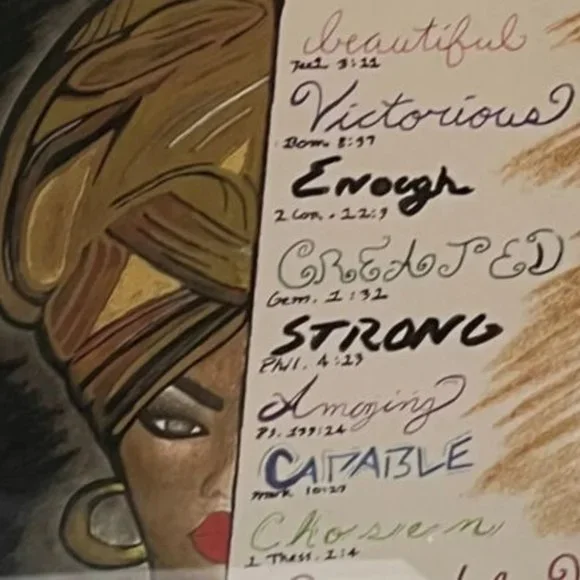 beautiful
Victorious
Rom. 8:37
Enough
2 Cor. 12:9
CREATED
Gen. 1:32
STRONG
Phil. 4:23
Amazing
Ps. 139:24
CAPABLE
Mark 10:27
Chosen
1 Thess. 1:4